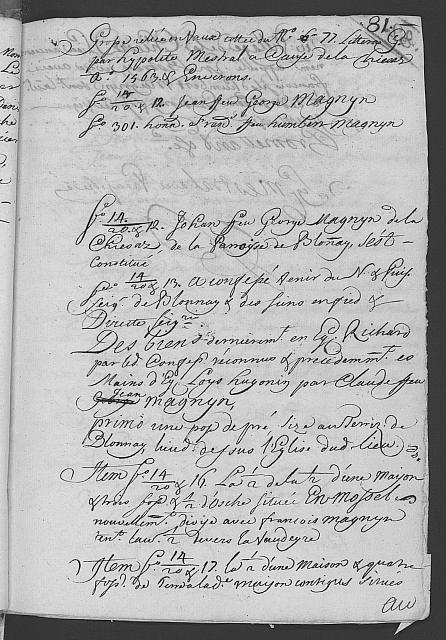 81.
Grosse reliée en Vaux cottée du N.º 6 77 Litera G
par hypolite Mestral a Cause de la Chiesaz
A.º 1563 & Environs.
f.º 14/20 & 12. Jean ffeu George Magnyn
f.º 301. honn. ffran. ffeu humbert Magnyn
f.º 14/20 & 12. Johan ffeu George Magnyn de la
Chiesaz, de la Parroisse de Blonay, s'est
Constitué
f.º 14/20 & 13. a confessé tenir du N. & Puis.
Seig.r de Blonnay & des siens en fied &
Directe Seig.rie
Des biens dernierem.t en Eg. Richard
par led. Confess. reconnus & precedemm.t es
Mains d'Eg. Loys hugonin par Claude ffeu
Jean
George magnyn,
primo une pose de pré size au Terri.re de
Blonnay, lieud. dessus l'Eglise dud. lieu.
Item f.º 14/20 & 16. La ½ de la ½ d'une Maison
& trois foss. & ½ d'Osche située En Mossel
nouvellem.t divisé avec francois magnyn
devers la vaudeyre
Item f.º 14/20 & 17. la ½ d'une Maison & quatre
foss. de Terre a lad. maison contigus sinces
au